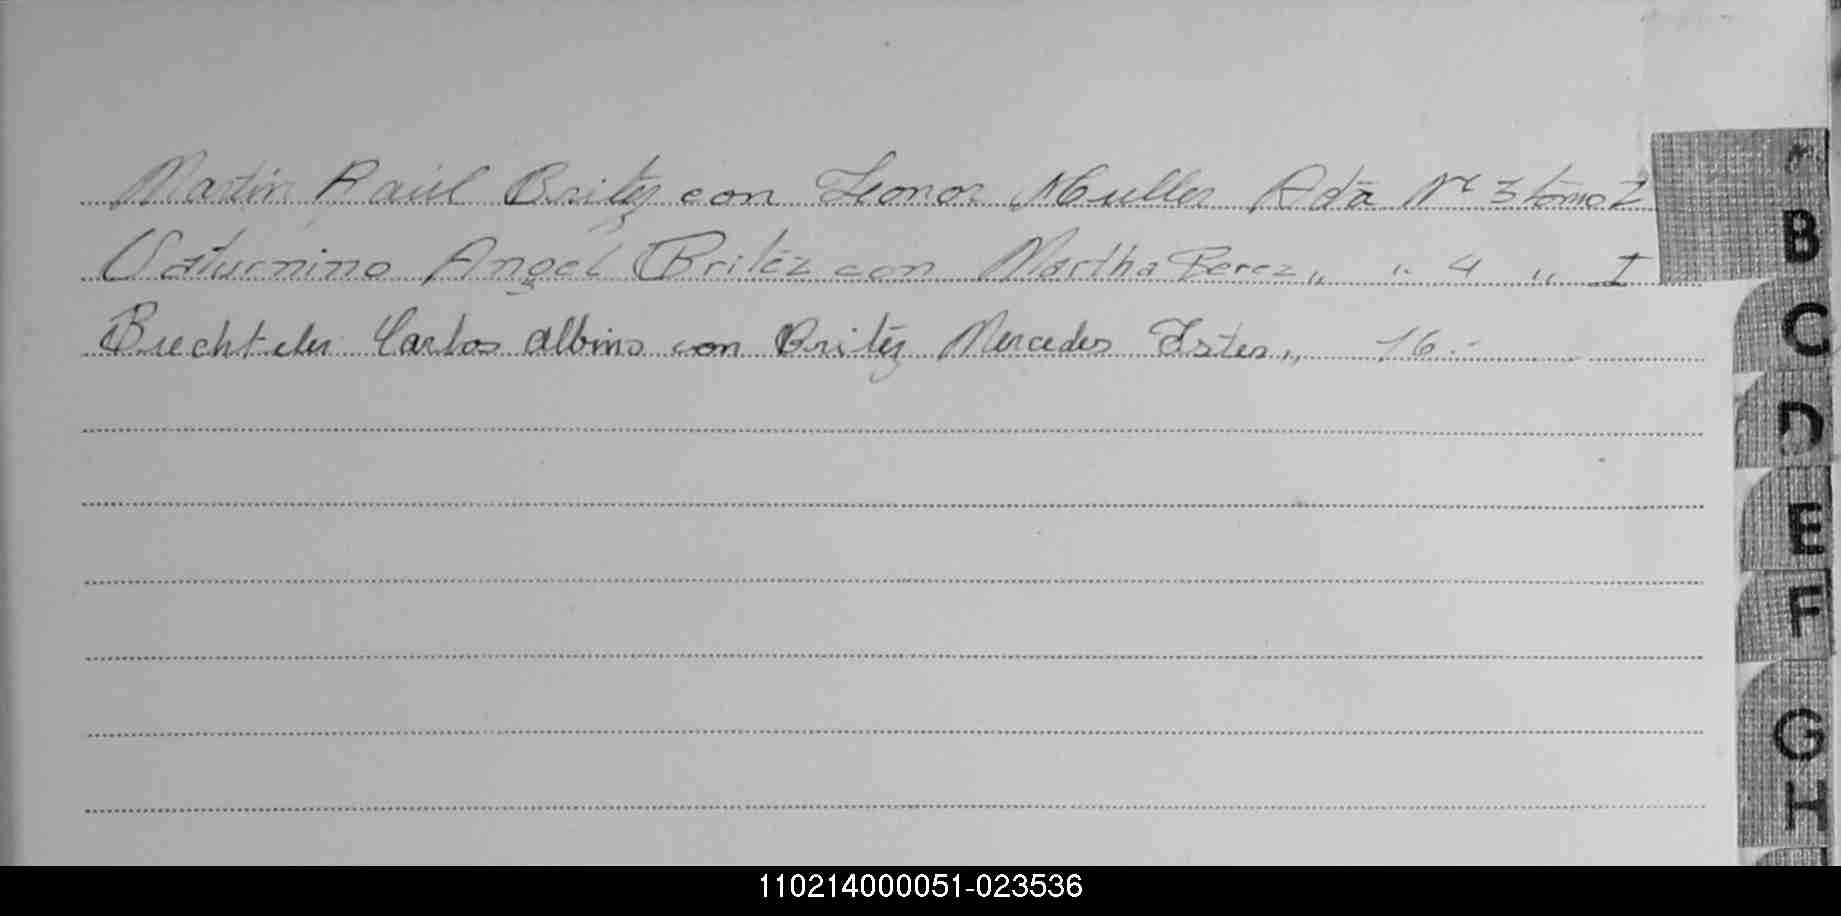 Martin Raúl Britez con Leonor Muller Acta Nº 3 tomo I
Saturnino Angel Britez con Martha Perez " " 4 " I
Buechteler Carlos Albino con Britez Mercedes Ester " 16.-
B
C
D
E
F
G
H
110214000051-023536